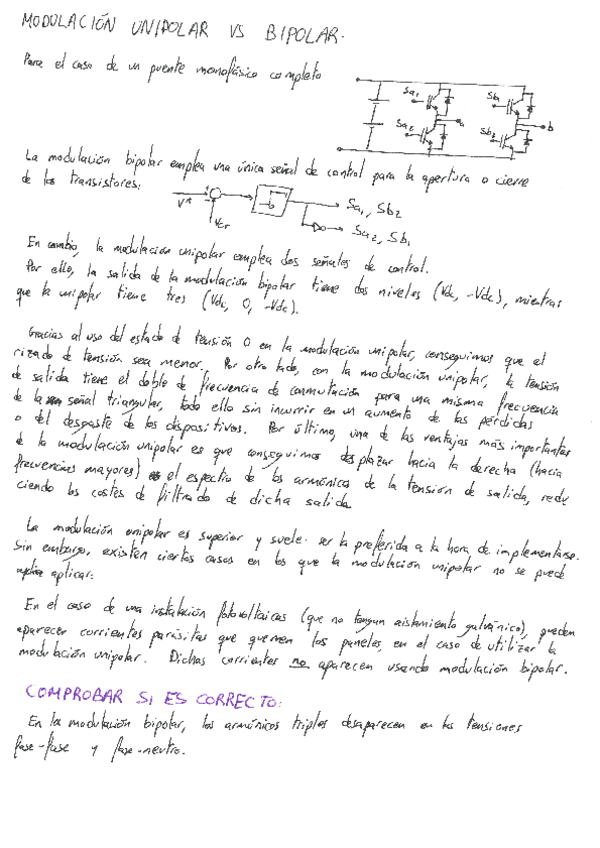 MODULACIÓN UNIPOLAR VS BIPOLAR.
Para el caso de un puente monofásico completo
Sa1
Sb1
a
b
Sa2
Sb2
La modulación bipolar emplea una única señal de control para la apertura o cierre
de los transistores:
V*
Vcr
Sa1, Sb2
Sa2, Sb1
En cambio, la modulación unipolar emplea dos señales de control.
Por ello, la salida de la modulación bipolar tiene dos niveles (Vdc, -Vdc), mientras
que la unipolar tiene tres (Vdc, 0, -Vdc).
Gracias al uso del estado de tensión 0 en la modulación unipolar, conseguimos que el
rizado de tensión sea menor. Por otro lado, con la modulación unipolar, la tensión
de salida tiene el doble de frecuencia de conmutación para una misma frecuencia
de la señal triangular, todo ello sin incurrir en un aumento de las pérdidas
o del desgaste de los dispositivos. Por último, una de las ventajas más importantes
de la modulación unipolar es que conseguimos desplazar hacia la derecha (hacia
frecuencias mayores) el espectro de los armónicos de la tensión de salida, redu
ciendo los costes de filtrado de dicha salida
La modulación unipolar es superior y suele ser la preferida a la hora de implementarse.
Sin embargo, existen ciertos casos en los que la modulación unipolar no se puede
aplicar:
En el caso de una instalación fotovoltaicas (que no tengan aislamiento galvánico), pueden
aparecer corrientes parásitas que quemen los paneles, en el caso de utilizar la
modulación unipolar. Dichas corrientes no aparecen usando modulación bipolar.
COMPROBAR SI ES CORRECTO:
En la modulación bipolar, los armónicos triples desaparecen en las tensiones
fase-fase y fase-neutro.